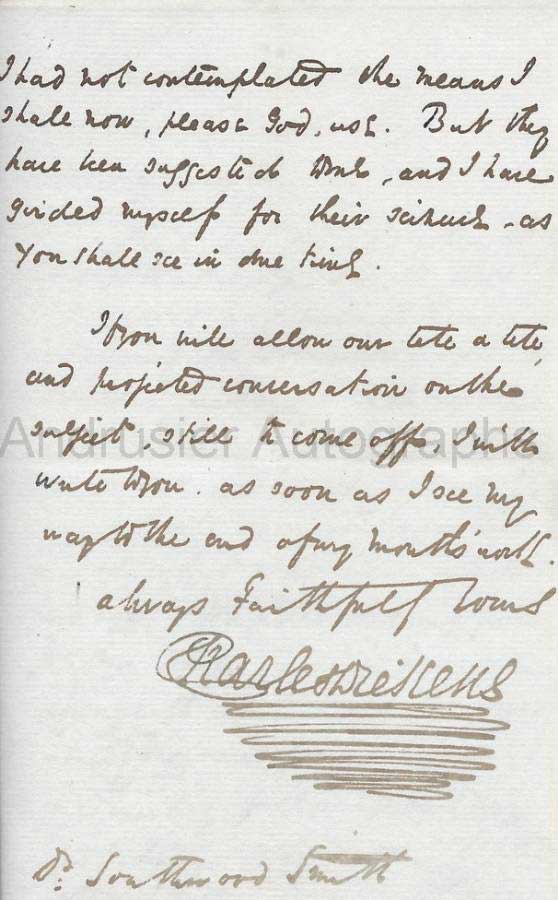 I had not contemplated the means I
shall now, please God, use. But they
have been suggested to me, and I have
girded myself for their seizure, as
you shall see in due time.
If you will allow our tete a tete,
and projected conversation on the
subject, still to come off, I will
write to you, as soon as I see my
way to the end of my month's work.
always Faithfully Yours
Charles Dickens
Dr. Southwood Smith
Andrusier Autographs